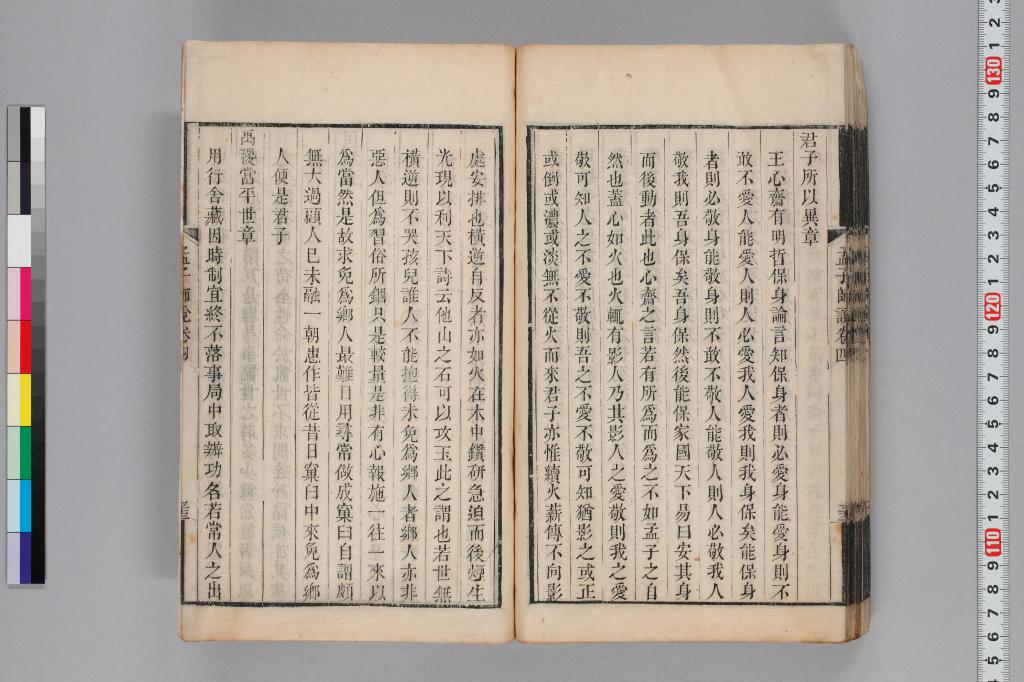 君子所以異章
王心齋有明哲保身論言知保身者則必愛身能愛身則不
敢不愛人能愛人則人必愛我人愛我則我身保矣能保身
者則必敬身能敬身則不敢不敬人能敬人則人必敬我人
敬我則吾身保矣吾身保然後能保家國天下易曰安其身
而後動者此也心齋之言若有所為而為之不如孟子之自
然也蓋心如火也火輒有影人乃其影人之愛敬則我之愛
敬可知人之不愛不敬則吾之不愛不敬可知猶影之或正
或倒或濃或淡無不從火而來君子亦惟續火薪傳不向影
處安排也橫逆自反者亦如火在木中鑽研急迫而後煙生
光現以利天下詩云他山之石可以攻玉此之謂也若世無
橫逆則不哭孩兒誰人不能抱得未免為鄉人者鄉人亦非
惡人但為習俗所錮只是較量是非有心報施一往一來以
為當然是故求免為鄉人最難日用尋常做成窠臼自謂頗
無大過顧人已未融一朝患作皆從昔日窠臼中來免為鄉
人便是君子
禹稷當平世章
用行舍藏因時制宜終不落事局中取辦功名若常人之出
孟子師說卷四
孟子師說卷四